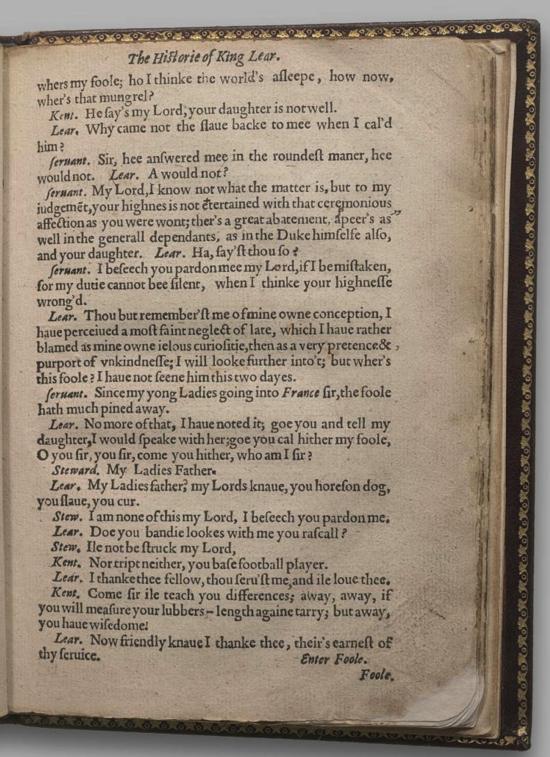 The Historie of King Lear.
whers my foole; ho I thinke the world's asleepe, how now,
wher's that mungrel?
Kent. He say's my Lord, your daughter is not well.
Lear. Why came not the slaue backe to mee when I cal'd
him?
seruant. Sir, hee answered mee in the roundest maner, hee
would not. Lear. A would not?
seruant. My Lord, I know not what the matter is, but to my
iudgemēt, your highnes is not ētertained with that ceremonious
affection as you were wont; ther's a great abatement, apeer's as
well in the generall dependants, as in the Duke himselfe also,
and your daughter. Lear. Ha, say'st thou so?
seruant. I beseech you pardon mee my Lord, if I be mistaken,
for my dutie cannot bee silent, when I thinke your highnesse
wrong'd.
Lear. Thou but remember'st me of mine owne conception, I
haue perceiued a most faint neglect of late, which I haue rather
blamed as mine owne ielous curiositie, then as a very pretence &
purport of vnkindnesse; I will looke further into't; but wher's
this foole? I haue not seene him this two dayes.
seruant. Since my yong Ladies going into France sir, the foole
hath much pined away.
Lear. No more of that, I haue noted it; goe you and tell my
daughter, I would speake with her; goe you cal hither my foole,
O you sir, you sir, come you hither, who am I sir?
Steward. My Ladies Father.
Lear. My Ladies father? my Lords knaue, you horeson dog,
you slaue, you cur.
Stew. I am none of this my Lord, I beseech you pardon me.
Lear. Doe you bandie lookes with me you rascall?
Stew. Ile not be struck my Lord,
Kent. Nor tript neither, you base football player.
Lear. I thanke thee fellow, thou seru'st me, and ile loue thee.
Kent. Come sir ile teach you differences; away, away, if
you will measure your lubbers-length againe tarry; but away,
you haue wisedome.
Lear. Now friendly knaue I thanke thee, their's earnest of
thy seruice. Enter Foole.
Foole.